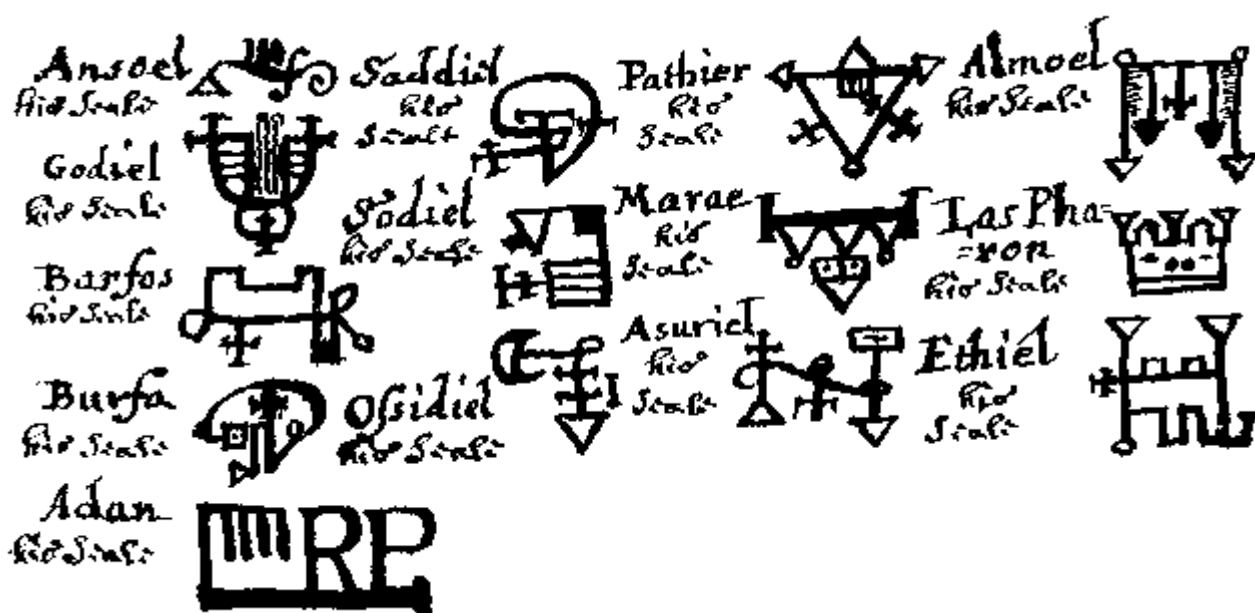 Ansoel
his Seale
Godiel
his Seale
Barfos
his Seale
Burfa
his Seale
Adan
his Seale
RP
Saddiel
his
Seale
Sodiel
his Seale
Ossidiel
his Seale
Pathier
his
Seale
Marae
his
Seale
Asuriel
his
Seale
Almoel
his Seale
Las Pha=
=ron
his Seale
Ethiel
his
Seale